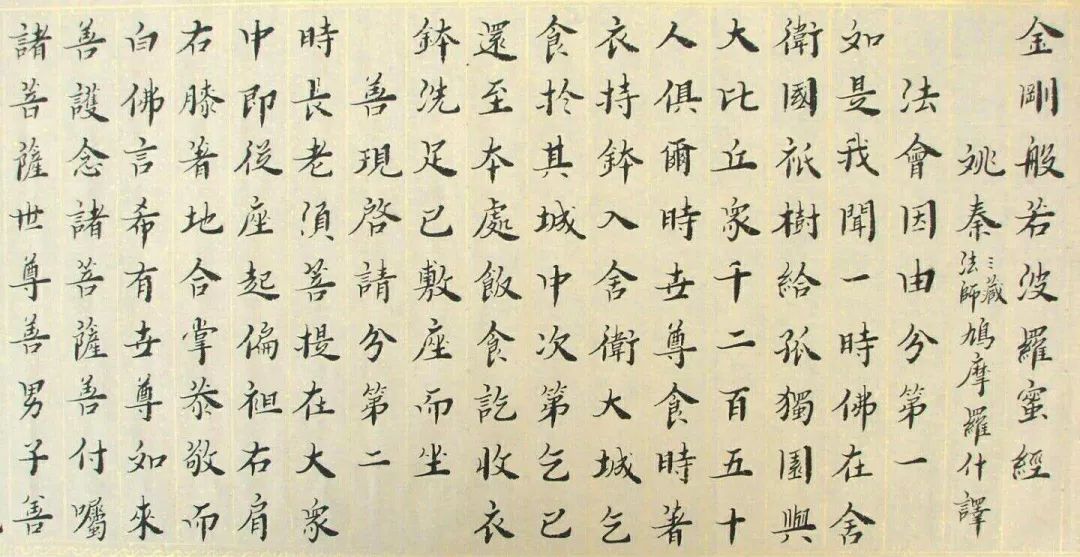 金剛般若波羅蜜經
姚秦三藏法師鳩摩羅什譯
法會因由分第一
如是我聞一時佛在舍
衛國祇樹給孤獨園與
大比丘眾千二百五十
人俱爾時世尊食時著
衣持鉢入舍衛大城乞
食於其城中次第乞已
還至本處飯食訖收衣
鉢洗足已敷座而坐
善現啓請分第二
時長老須菩提在大眾
中即從座起偏袒右肩
右膝著地合掌恭敬而
白佛言希有世尊如來
善護念諸菩薩善付囑
諸菩薩世尊善男子善